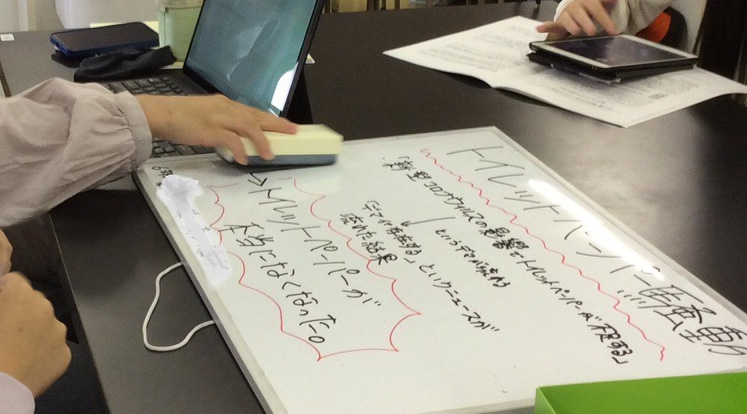 トイレットペーパー騒動
「新型コロナウイルスの影響でトイレットペーパーが不足する」
というデマが流れる
「デマが存在する」というニュースが
流れた結果
→トイレットペーパーが
本当になくなった。